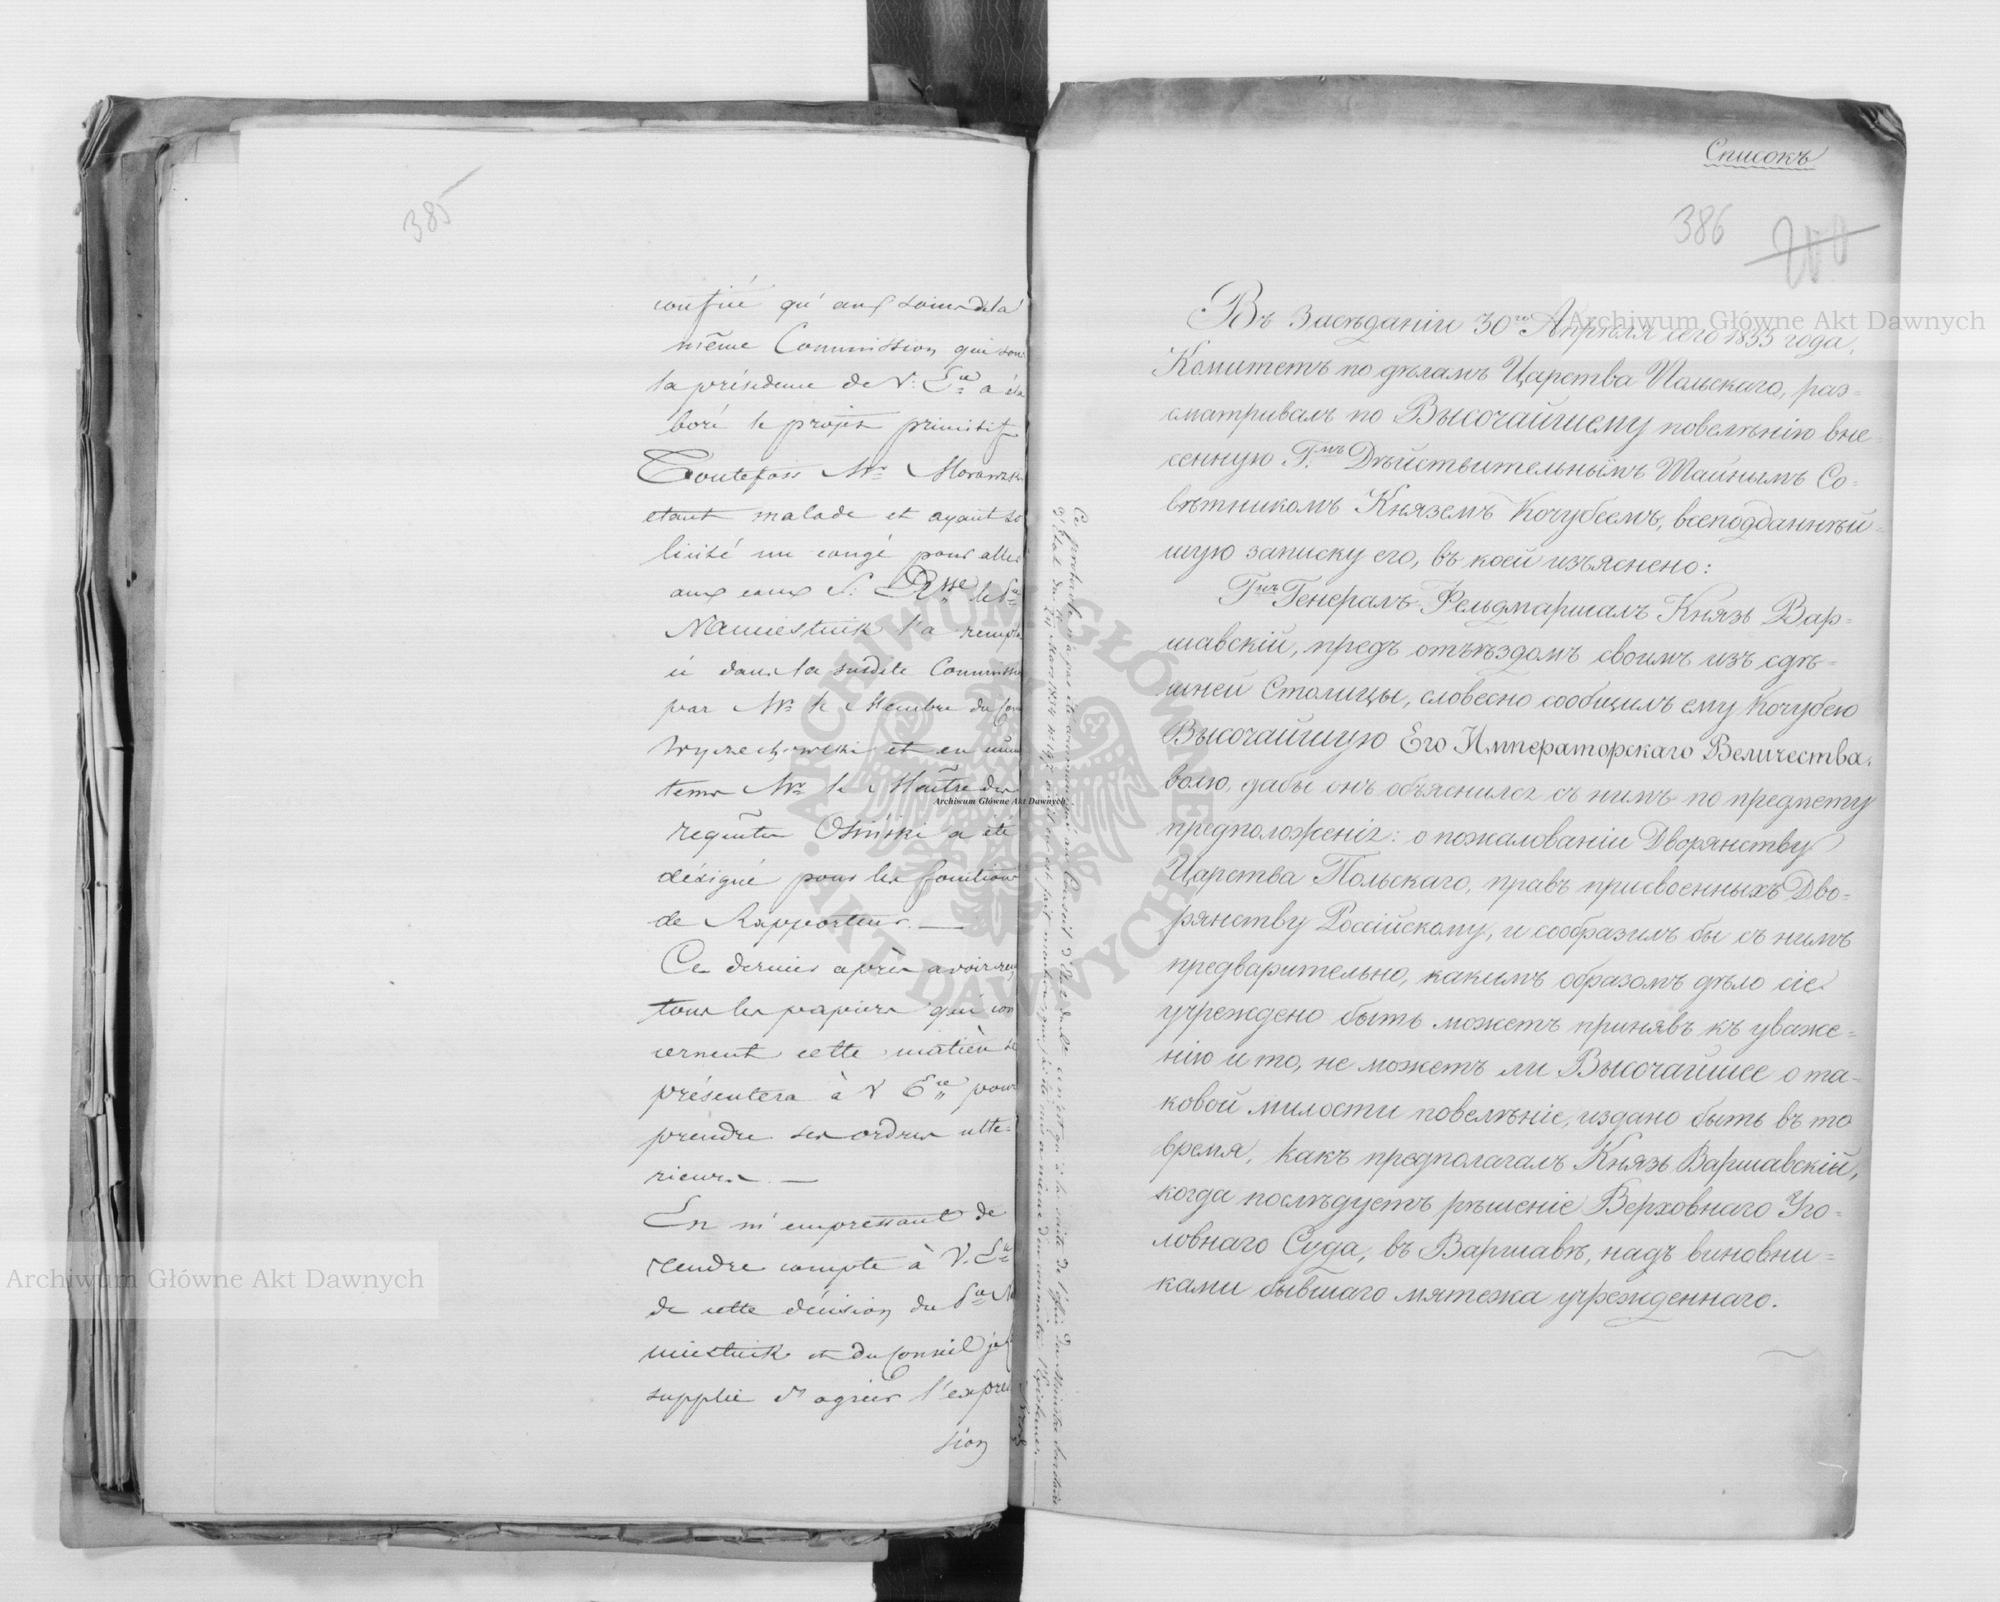 385
confiée qu'aux soins de la
même Commission qui sous
la présidence de V. Exce a éla
boré le projet primitif
Toutefois Mr Morawski
étant malade et ayant so
licité un congé pour aller
aux eaux S. Asse le Pce
Namiestnik l'a rempla
cé dans la susdite Commission
par Mr le Membre du Con
Wyczechowski et en même
tems Mr le Maître des
requêtes Osiński a été
désigné pour les fonctions
de Rapporteur. —
Ce dernier après avoir reçu
tous les papiers qui con
cernent cette matière se
présentera à V. Exce pour
prendre ses ordres ulte-
rieurs. —
En m'empressant de
rendre compte à V. Exce
de cette décision du Pce Na
miestnik et du Conseil je
supplie d'agréer l'expres
sion
Списокъ
386
200
Въ Засѣданіи 30го Апрѣля сего 1833 года,
Комитетъ по дѣламъ Царства Польскаго, раз-
сматривалъ по Высочайшему повелѣнію вне-
сенную Г.мъ Дѣйствительнымъ Тайнымъ Со-
вѣтникомъ Княземъ Кочубеемъ, всеподданнѣй-
шую записку его, въ коей изъяснено:
Г.нъ Генералъ-Фельдмаршалъ Князь Вар-
шавскій, предъ отъѣздомъ своимъ изъ здѣ-
шней Столицы, словесно сообщилъ ему Кочубею
Высочайшую Его Императорскаго Величества
волю, дабы онъ объяснился съ нимъ по предмету
предположенія: о пожалованіи Дворянству
Царства Польскаго, правъ присвоенныхъ Дво-
рянству Россійскому, и сообразилъ бы съ нимъ
предварительно, какимъ образомъ дѣло сіе
учреждено быть можетъ принявъ къ уваже-
нію и то, не можетъ ли Высочайшее о та-
ковой милости повелѣніе, издано быть въ то
время, какъ предполагалъ Князь Варшавскій,
когда послѣдуетъ рѣшеніе Верховнаго Уго-
ловнаго Суда, въ Варшавѣ, надъ виновни-
ками бывшаго мятежа учрежденнаго.
Archiwum Główne Akt Dawnych
Archiwum Główne Akt Dawnych
Archiwum Główne Akt Dawnych
ARCHIWUM GŁÓWNE AKT DAWNYCH